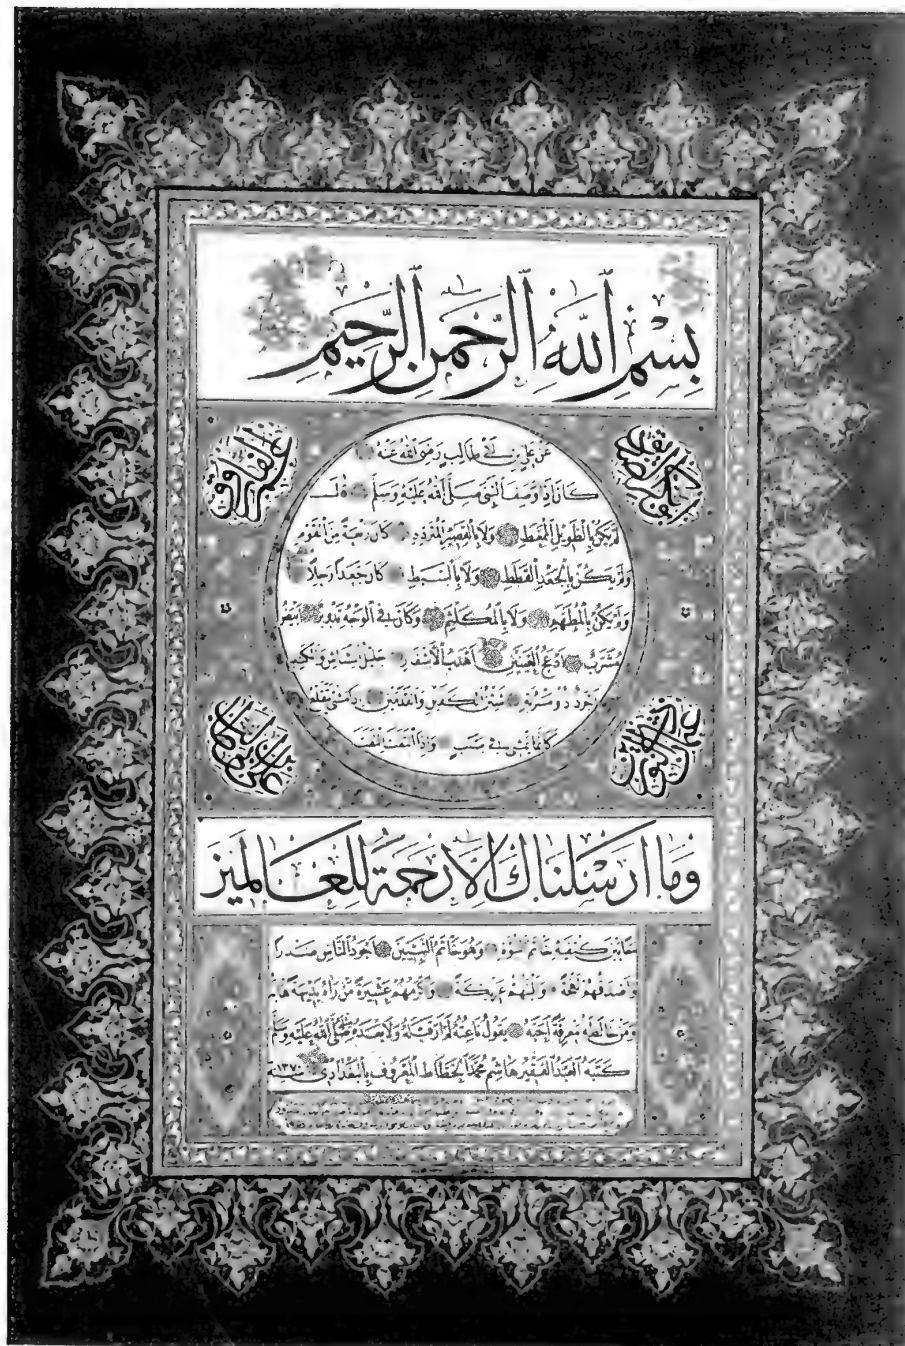 بِسْمِ اللهِ الرَّحْمٰنِ الرَّحِيمِ
عن علي بن أبي طالب رضي الله عنه
كان إذا وصف النبي صلى الله عليه وسلم قال
لم يكن بالطويل الممغط ولا بالقصير المتردد كان ربعة من القوم
ولم يكن بالجعد القطط ولا بالسبط كان جعدا رجلا
ولم يكن بالمطهم ولا بالمكلثم وكان في الوجه تدوير أبيض
مشرب أدعج العينين أهدب الأشفار جليل المشاش والكتد
أجرد ذو مسربة شثن الكفين والقدمين إذا مشى تقلع
كأنما يمشي في صبب وإذا التفت التفت
وما أرسلناك إلا رحمة للعالمين
بين كتفيه خاتم النبوة وهو خاتم النبيين أجود الناس صدرا
وأصدقهم لهجة وألينهم عريكة وأكرمهم عشيرة من رآه بديهة هابه
ومن خالطه معرفة أحبه يقول ناعته لم أر قبله ولا بعده مثله صلى الله عليه وسلم
كتبه العبد الفقير هاشم محمد الخطاط المعروف بالبغدادي ١٣٧٠